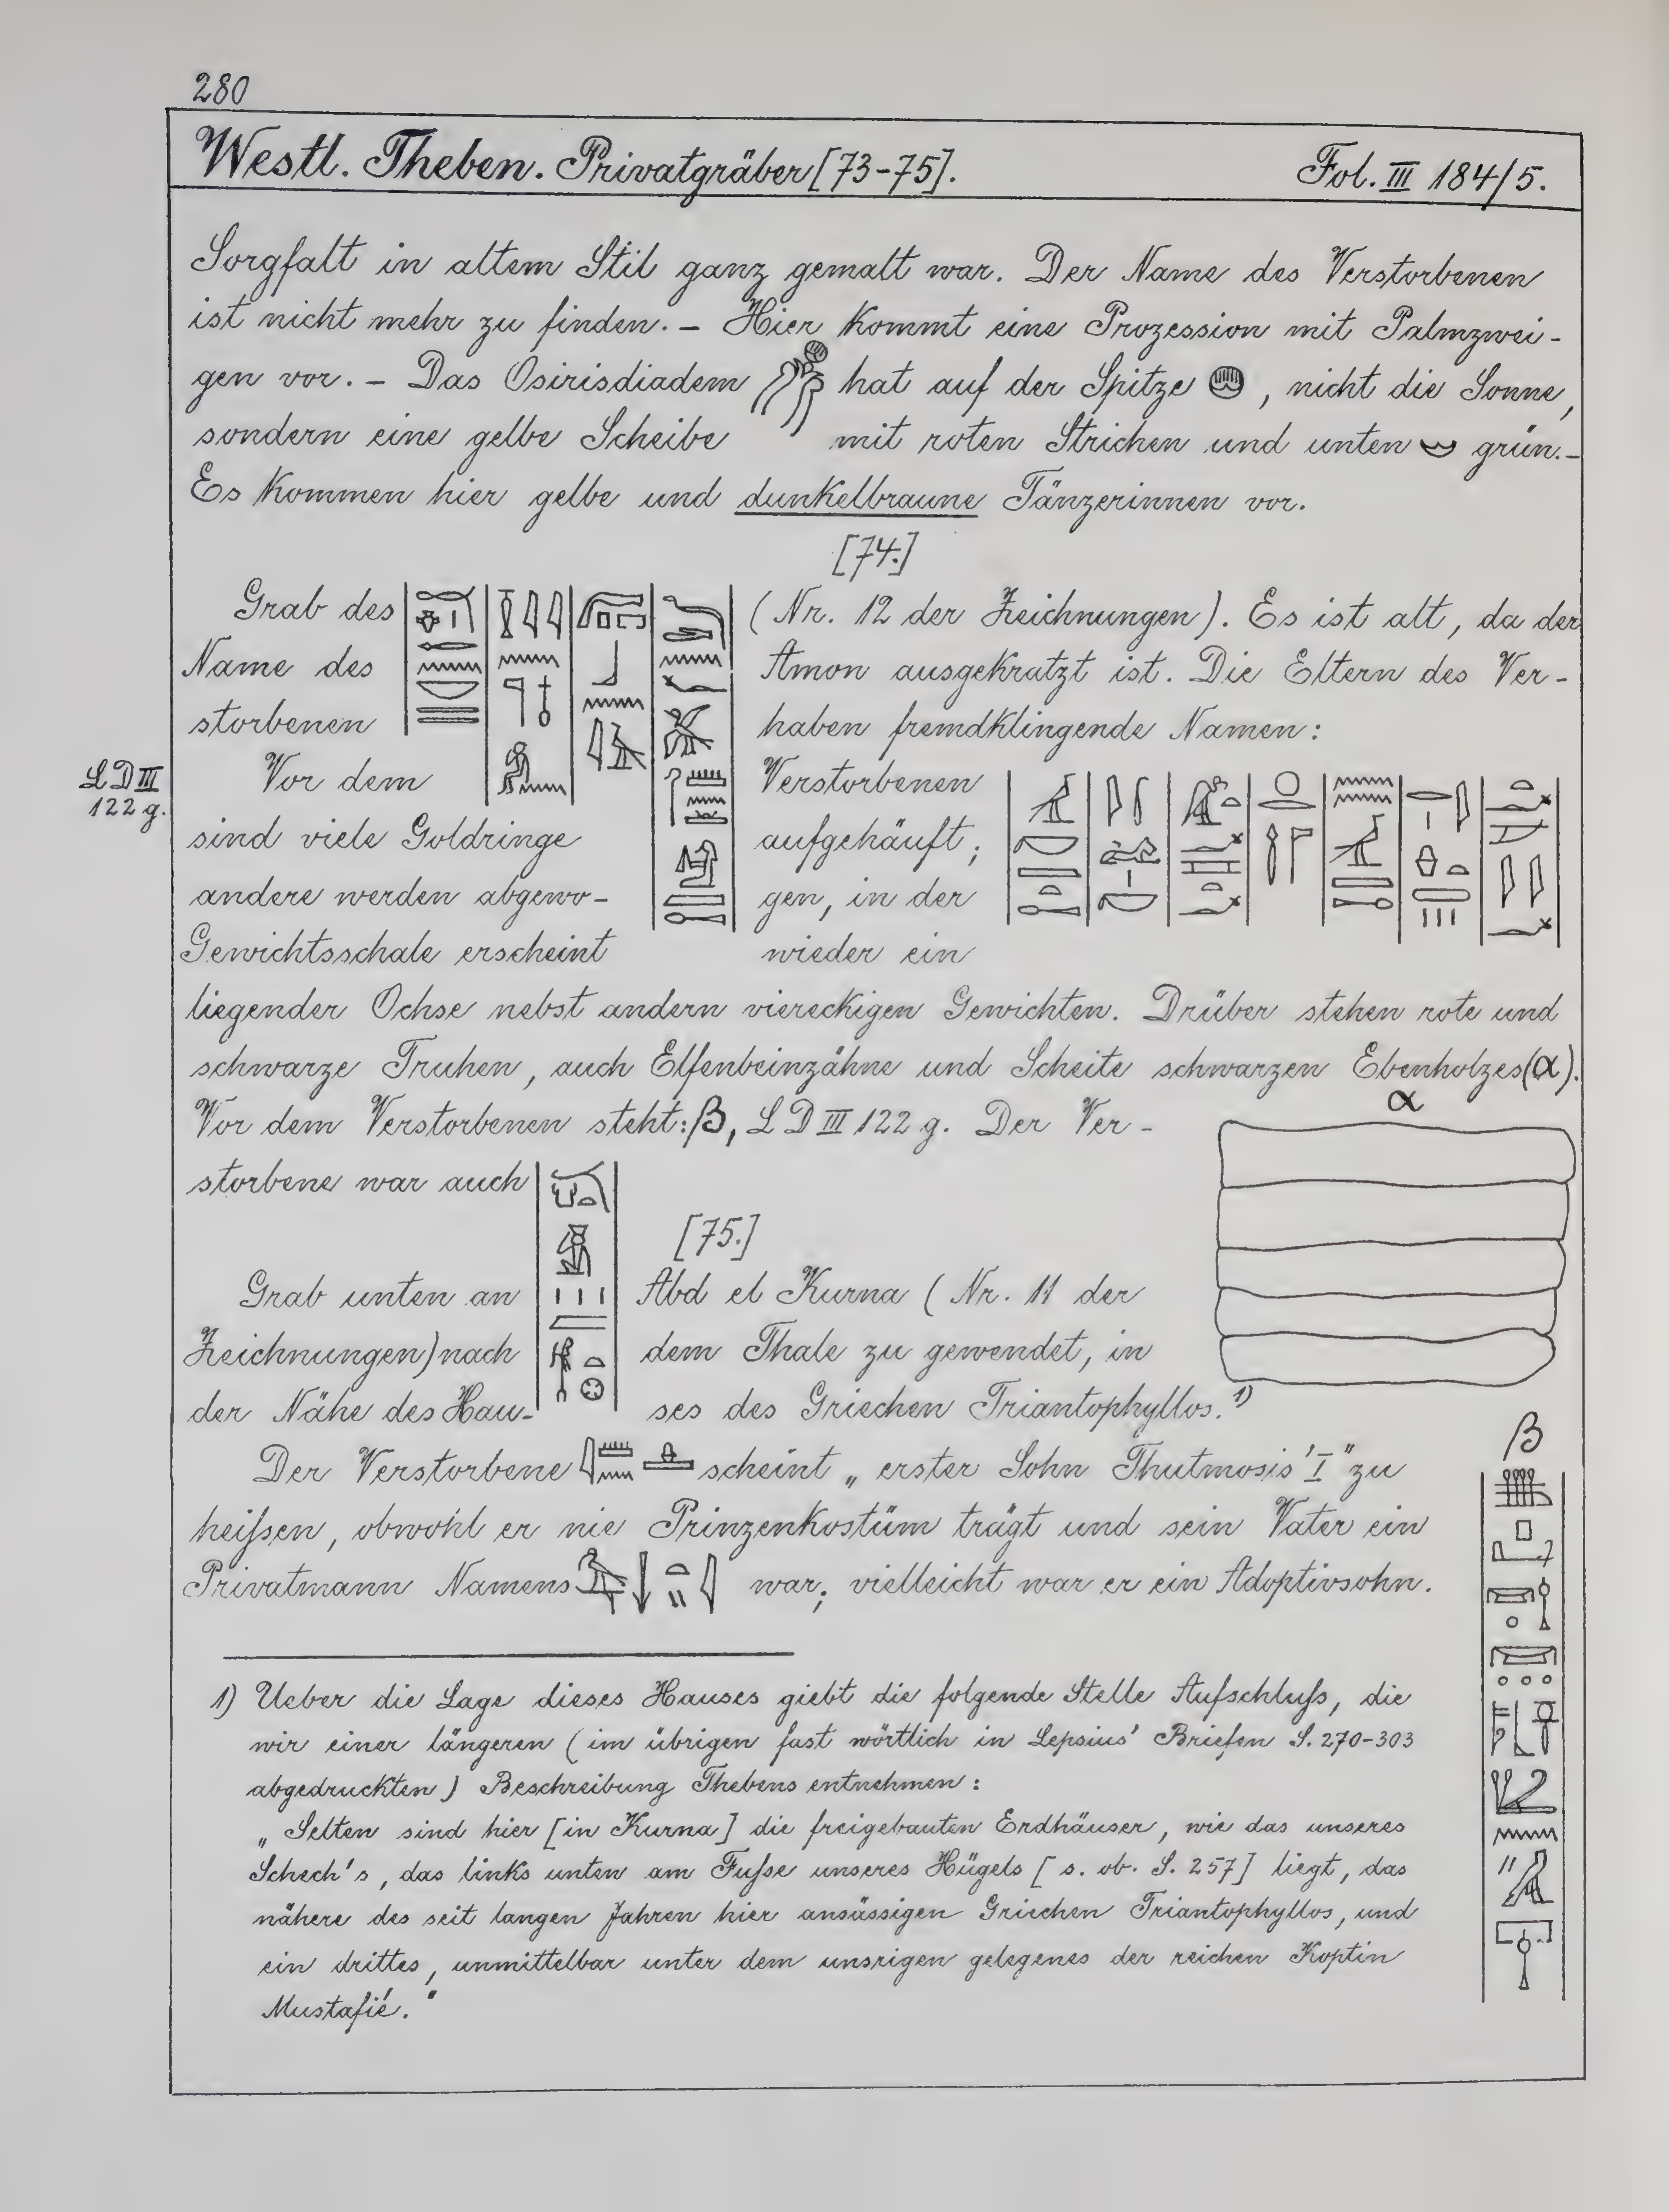 280
Westl. Theben. Privatgräber [73-75]. Fol. III 184/5.
Sorgfalt in altem Stil ganz gemalt war. Der Name des Verstorbenen
ist nicht mehr zu finden. – Hier kommt eine Prozession mit Palmzwei-
gen vor. – Das Osirisdiadem hat auf der Spitze , nicht die Sonne,
sondern eine gelbe Scheibe mit roten Strichen und unten grün. –
Es kommen hier gelbe und dunkelbraune Tänzerinnen vor.
[74.]
Grab des (Nr. 12 der Zeichnungen). Es ist alt, da der
Name des Amon ausgekratzt ist. Die Eltern des Ver-
storbenen haben fremdklingende Namen:
LD III
122 g.
Vor dem Verstorbenen
sind viele Goldringe aufgehäuft;
andere werden abgewo- gen, in der
Gewichtsschale erscheint wieder ein
liegender Ochse nebst andern viereckigen Gewichten. Drüber stehen rote und
schwarze Truhen, auch Elfenbeinzähne und Scheite schwarzen Ebenholzes (α).
α
Vor dem Verstorbenen steht: β, LD III 122 g. Der Ver-
storbene war auch
[75.]
Grab unten an Abd el Kurna (Nr. 11 der
Zeichnungen) nach dem Thale zu gewendet, in
der Nähe des Hau- ses des Griechen Triantophyllos. 1)
β
Der Verstorbene scheint „erster Sohn Thutmosis' I" zu
heißen, obwohl er nie Prinzenkostüm trägt und sein Vater ein
Privatmann Namens war; vielleicht war er ein Adoptivsohn.
1) Ueber die Lage dieses Hauses giebt die folgende Stelle Aufschluß, die
wir einer längeren (im übrigen fast wörtlich in Lepsius' Briefen S. 270-303
abgedruckten) Beschreibung Thebens entnehmen:
„Selten sind hier [in Kurna] die freigebauten Erdhäuser, wie das unseres
Schech's, das links unten am Fuße unseres Hügels [s. ob. S. 257] liegt, das
nähere des seit langen Jahren hier ansässigen Griechen Triantophyllos, und
ein drittes, unmittelbar unter dem unsrigen gelegenes der reichen Koptin
Mustafié."